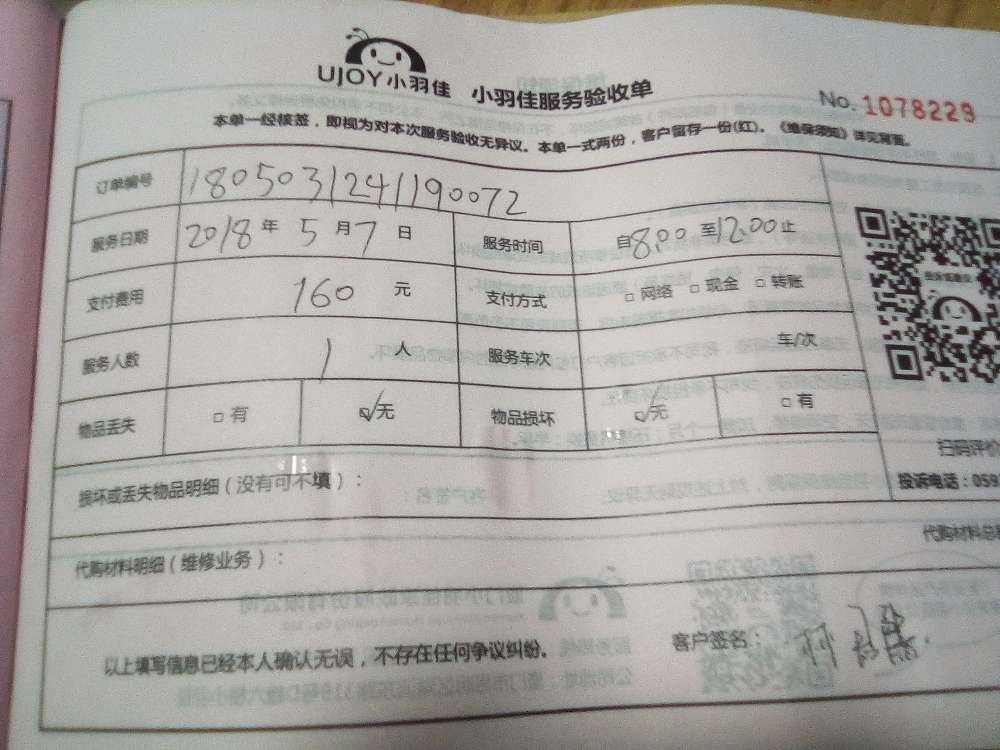 UJOY小羽佳 小羽佳服务验收单
No. 1078229
本单一经核签，即视为对本次服务验收无异议。本单一式两份，客户留存一份(红)。《维保须知》详见背面。
订单编号 1805031241190072
服务日期 2018年 5月7日 服务时间 自8:00至12:00止
支付费用 160 元 支付方式 □ 网络 □ 现金 □ 转账
服务人数 1 人 服务车次 车/次
物品丢失 □ 有 ☑无 物品损坏 ☑无 □ 有
扫码评价
损坏或丢失物品明细（没有可不填）：
投诉电话：059
代购材料明细（维修业务）：
代购材料总
以上填写信息已经本人确认无误，不存在任何争议纠纷。
客户签名：